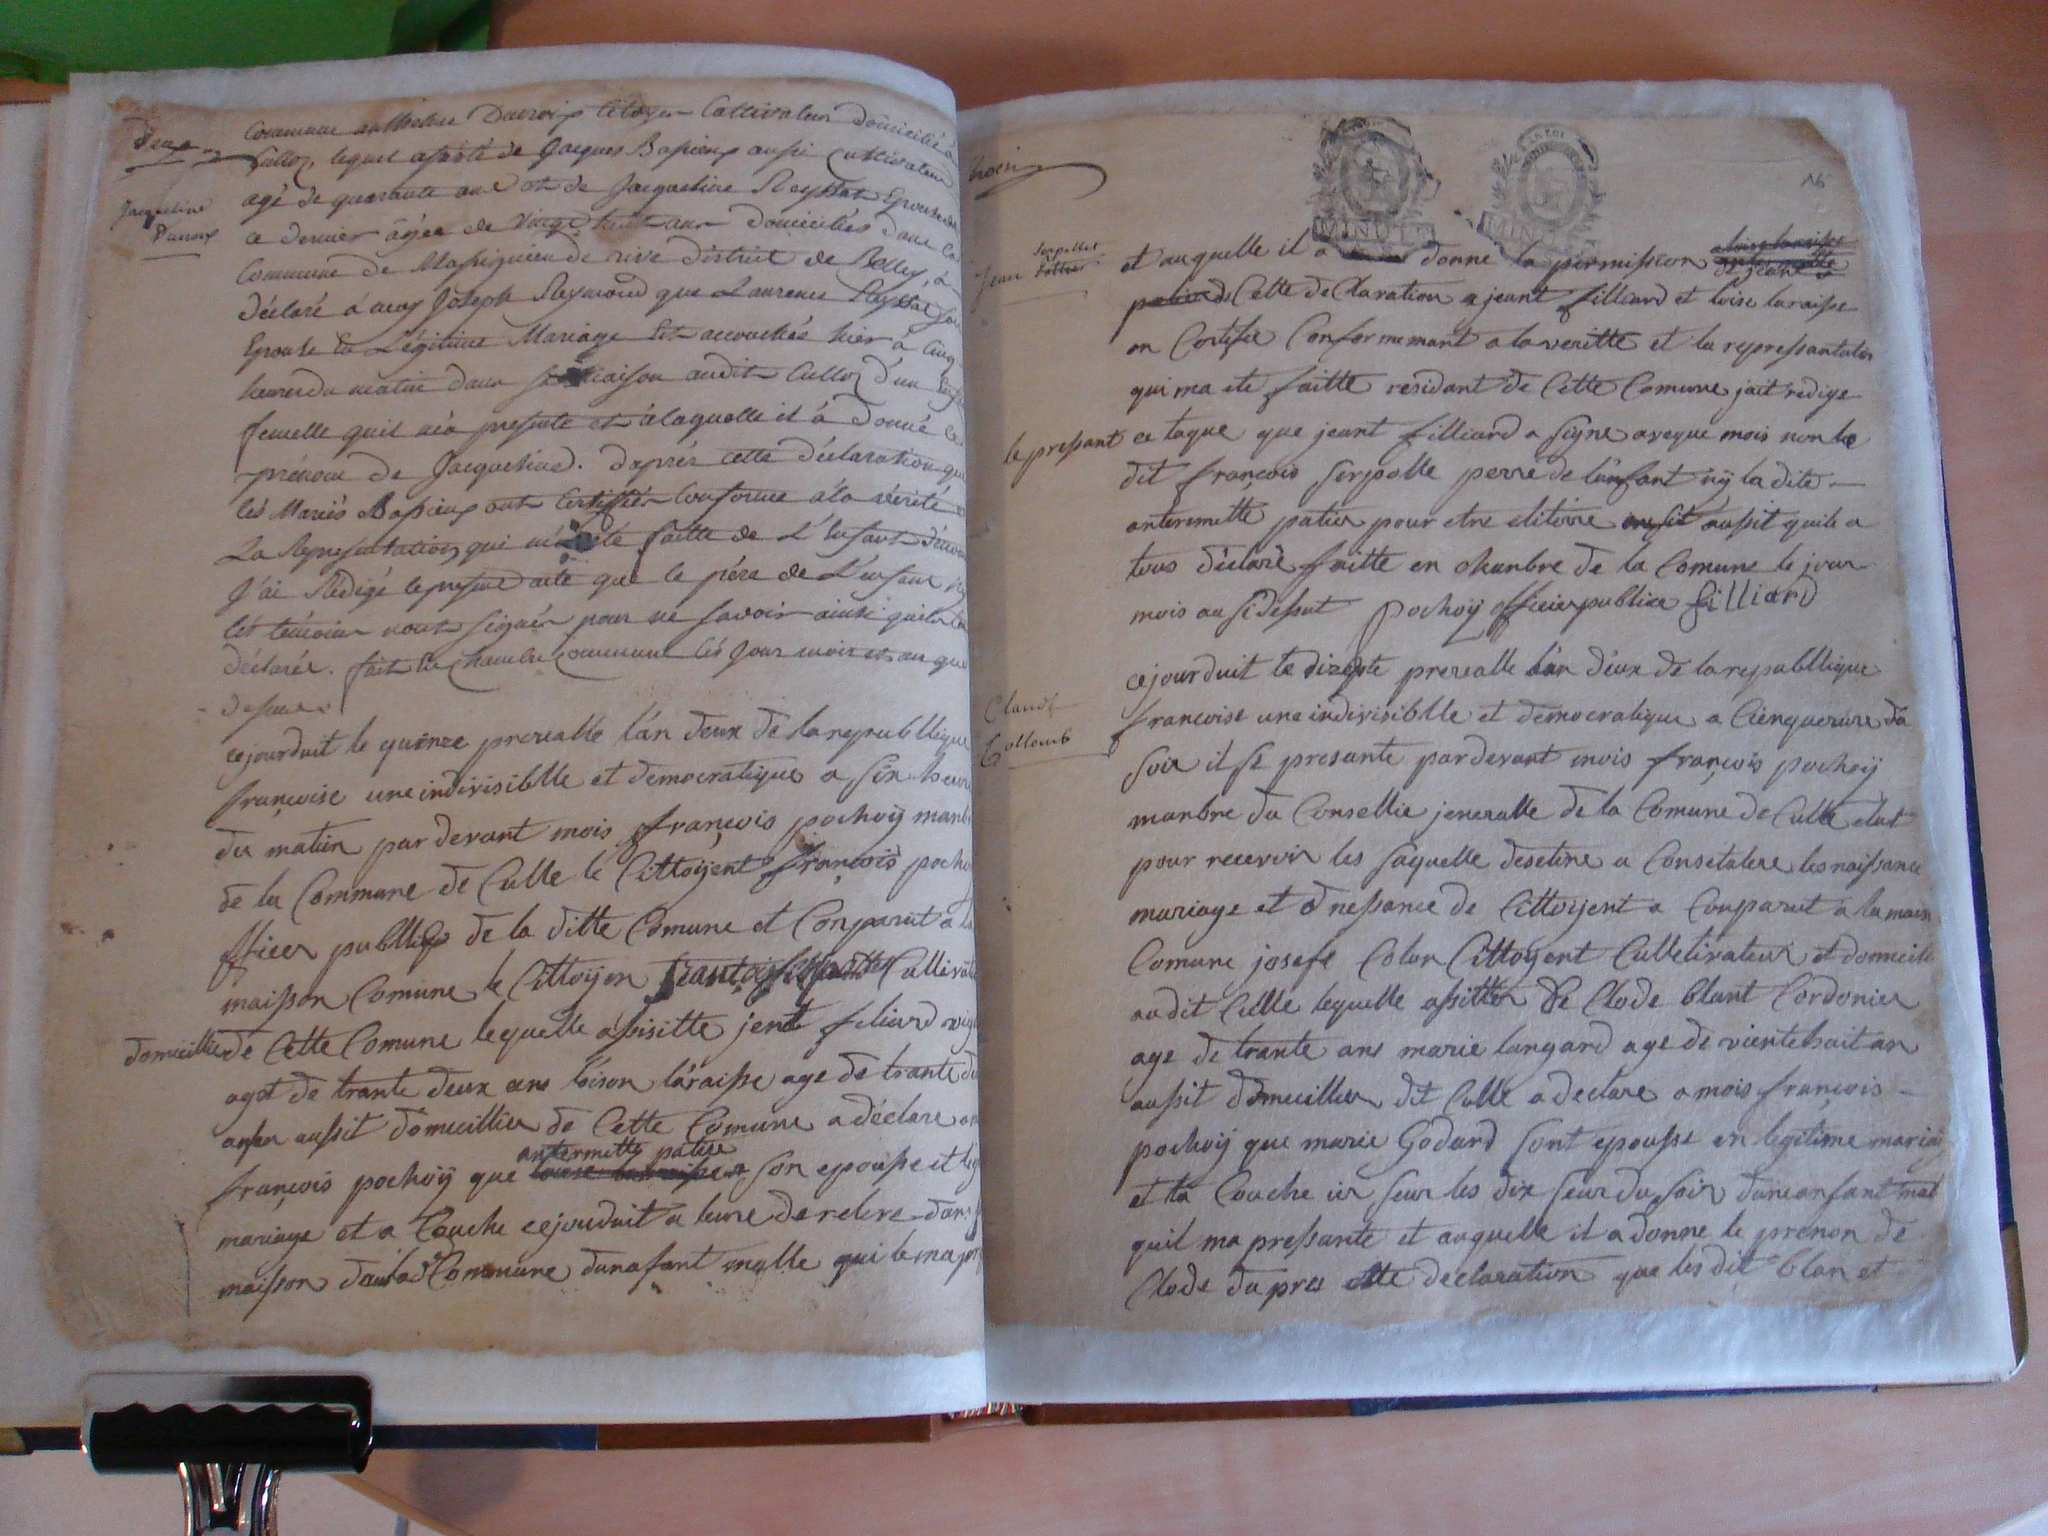 Deux
Jacqueline
Ducroix
Commune anthelme Ducroix Citoyen Cultivateur Domicilié à
Culloz, lequel assisté de Jacques Bassieux aussi Cultivateur
agé de quarante ans et de Jacqueline Reystat Epouse de
ce dernier agée de vingt huit ans domiciliés dans la
Commune de Massignieu de rive district de Belley, à
déclaré à moy Joseph Reymond que Laurence Reystat son
Epouse en Légitime Mariage Est accouchée hier à Cinq
heures du matin dans sa maison audit Culloz d'un
femelle quil m'a presenté et à laquelle il à donné le
prénom de Jacqueline. d'après cette déclaration que
les Mariés Bassieux ont certiffiés Conforme à la vérité
La Représentation qui m'a été faitte de L'Enfant
J'ai Rédigé le present acte que le père de L'enfant ny
les temoins nont signés pour ne savoir ainsi quils
déclarée. fait En Chambre Commune les jour mois et an que
dessus.
cejourduit le quinze prerealle lan deux de la republlique
françoise une indivisiblle et democratique a six heure
du matin par devant mois françois pochoÿ manbre
de la Commune de Culle le Cittoÿent françois pochoÿ
fficier publlique de la ditte Comune et Conparut a la
maisson Comune le Cittoÿen françois Cultivateur
domecillier de Cette Comune lequelle assisitte jent filiard
aget de trante deux ans loison laraisse age de trante
ansen aussit domecillier de Cette Comune a declare
antermette patier
françois pochoÿ que son epousse et
mariage et a Couche cejourduit a leure de relere dans
maisson de Commune dunafant malle qui le ma
16
MINUTE
MINUTE
Serpollet
Jean
et auquelle il a donne la permission
Cette deClaration a jeant filliard et loise laraisse
on Certifie Conformemant a la veritte et la repressantation
qui ma ete faitte residant de Cette Comune jait redige
le pressant ce taque que jeant filliard a signe aveque mois non le
dit françois serpolle perre de lanfant nÿ la dite
antermette patier pour etre eliterre aussit quile a
tous déclaré faitte en chanbre de la Comune le jour
mois au sidessut pochoÿ officier publice filliard
Claude
Collomb
cejourduit le dizepte prerealle lan deux de la republlique
francoise une indivisiblle et democratique a Cienqueure du
soir il se presante par devant mois françois pochoÿ
manbre du Consellie jeneralle de la Comune de Culle elut
pour recevoir les saquelle desetine a Consetatere les naissance
mariage et de Cittoÿent a Conparut a la maison
Comune josefe Colon Cittoyent Culletivateur et domecile
audit Culle lequelle assitter de Clode blant Cordonier
age de trante ans marie langard age de vientehait an
aussit domecillier dit Culle a declare a mois françois
pochoÿ que marie Godard sont epousse en legitime mariage
et ta Couche ier seur les dix seur du soir dunanfant mal
quil ma pressante et auquelle il a donne le prenon de
Clode dapres cette declaration que lesdit blan et